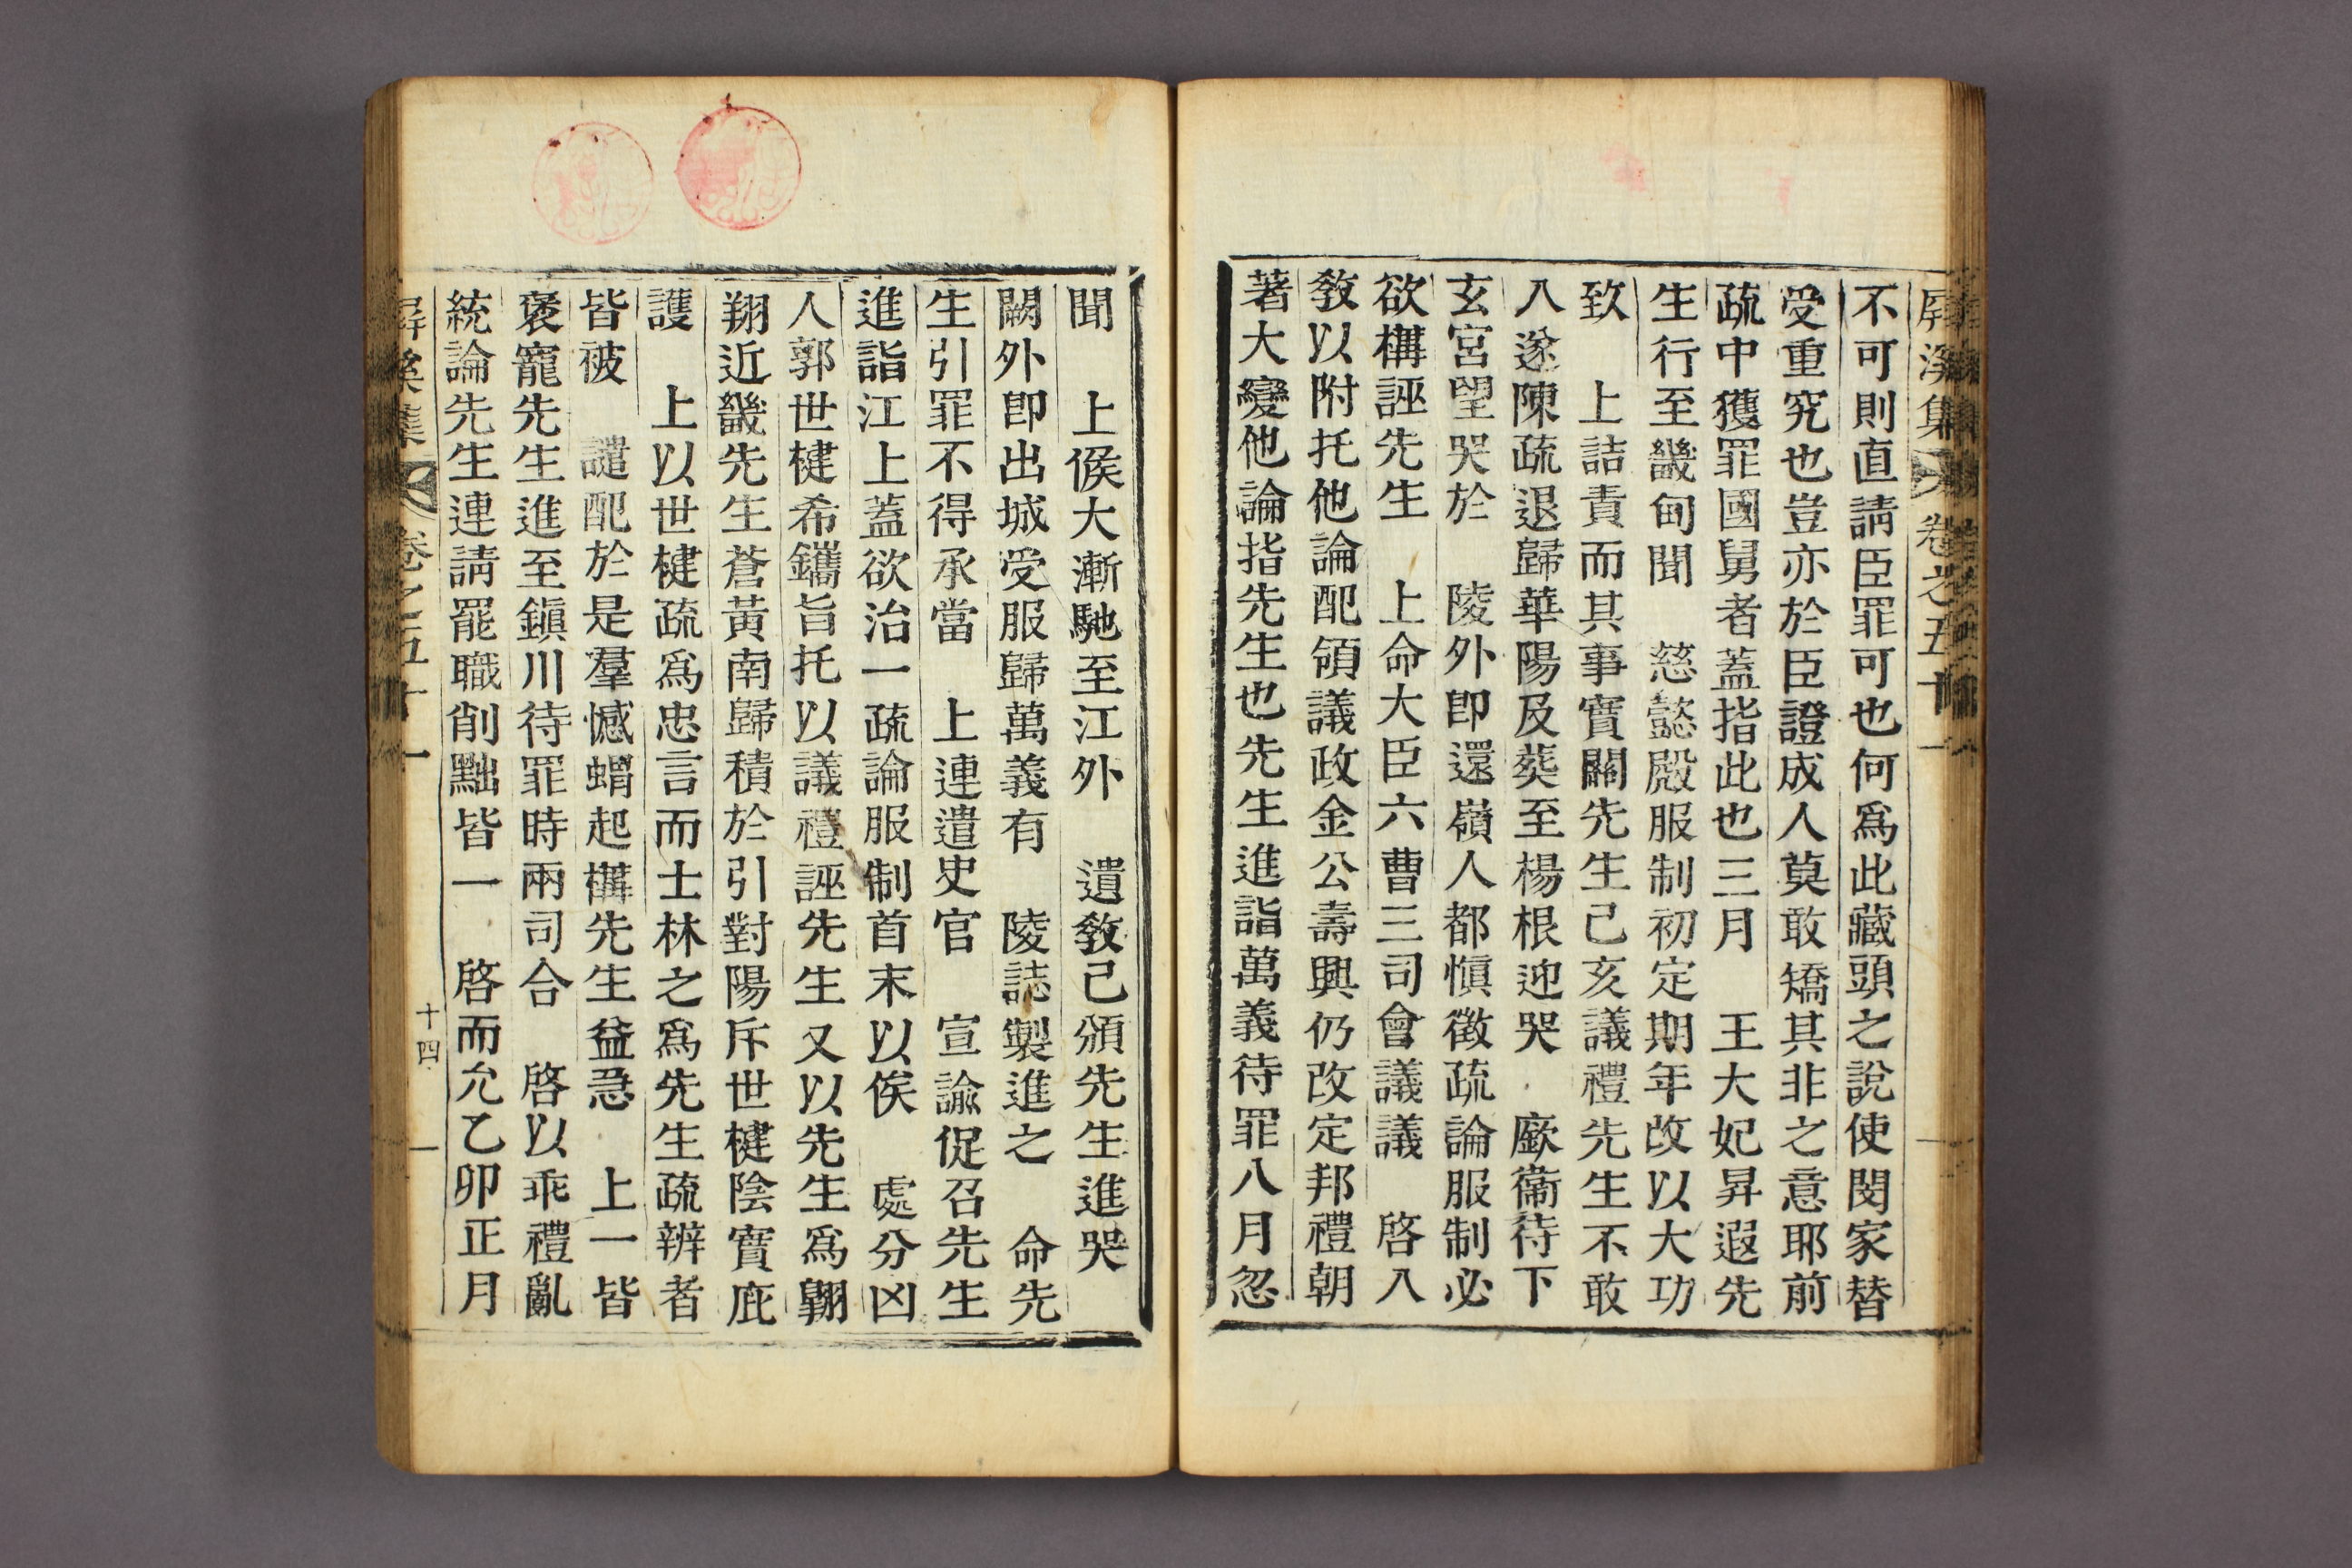 屛溪集 卷之五十一
不可則直請臣罪可也何爲此藏頭之說使閔家替
受重究也豈亦於臣證成人莫敢矯其非之意耶前
疏中獲罪國舅者蓋指此也三月 王大妃昇遐先
生行至畿甸聞 慈懿殿服制初定期年改以大功
致 上詰責而其事實關先生己亥議禮先生不敢
入遂陳疏退歸華陽及葬至楊根迎哭 廞衞待下
玄宮望哭於 陵外卽還嶺人都愼徵疏論服制必
欲構誣先生 上命大臣六曹三司會議議 啓入
敎以附托他論配領議政金公壽興仍改定邦禮朝
著大變他論指先生也先生進詣萬義待罪八月忽
聞 上候大漸馳至江外 遺敎已頒先生進哭
闕外卽出城受服歸萬義有 陵誌製進之 命先
生引罪不得承當 上連遣史官 宣諭促召先生
進詣江上蓋欲治一疏論服制首末以俟 處分凶
人郭世楗希鑴旨托以議禮誣先生又以先生爲翺
翔近畿先生蒼黃南歸積於引對陽斥世楗陰實庇
護 上以世楗疏爲忠言而士林之爲先生疏辨者
皆被 譴配於是羣憾蝟起構先生益急 上一皆
褒寵先生進至鎭川待罪時兩司合 啓以乖禮亂
統論先生連請罷職削黜皆一 啓而允乙卯正月
屛溪集 卷之五十一 十四